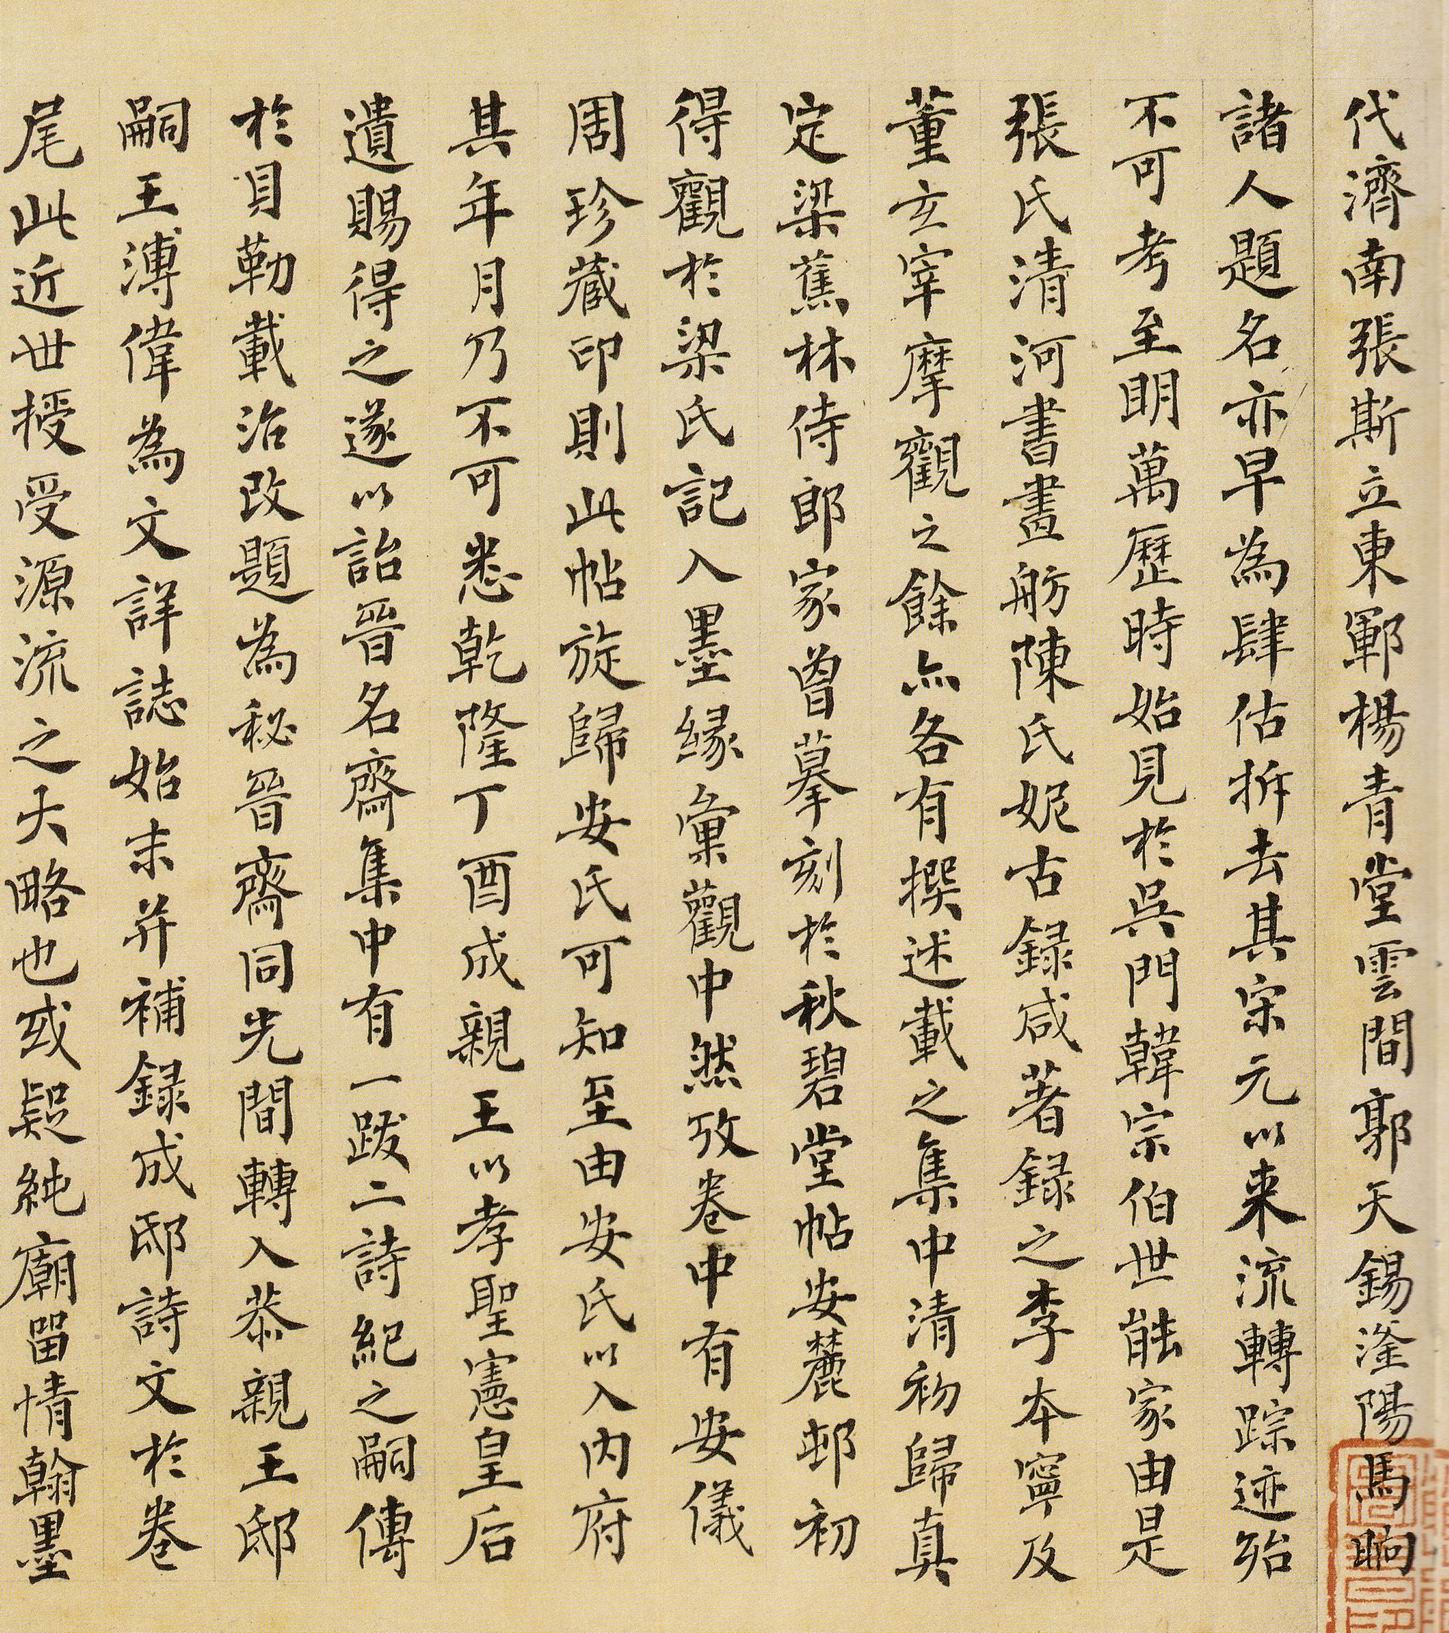 代濟南張斯立東鄆楊青堂雲間郭天錫滏陽馬昫
諸人題名亦早為肆估拆去其宋元以来流轉踪迹殆
不可考至明萬歷時始見於吳門韓宗伯世能家由是
張氏清河書畫舫陳氏妮古録咸著録之李本寧及
董玄宰摩觀之餘亦各有撰述載之集中清初歸真
定梁蕉林侍郎家曾摹刻於秋碧堂帖安麓邨初
得觀於梁氏記入墨緣彙觀中然攷卷中有安儀
周珍藏印則此帖旋歸安氏可知至由安氏以入內府
其年月乃不可悉乾隆丁酉成親王以孝聖憲皇后
遺賜得之遂以詒晉名齋集中有一跋二詩紀之嗣傳
於貝勒載治改題為秘晉齋同光間轉入恭親王邸
嗣王溥偉為文詳誌始末并補録成邸詩文於卷
尾此近世授受源流之大略也或疑純廟留情翰墨